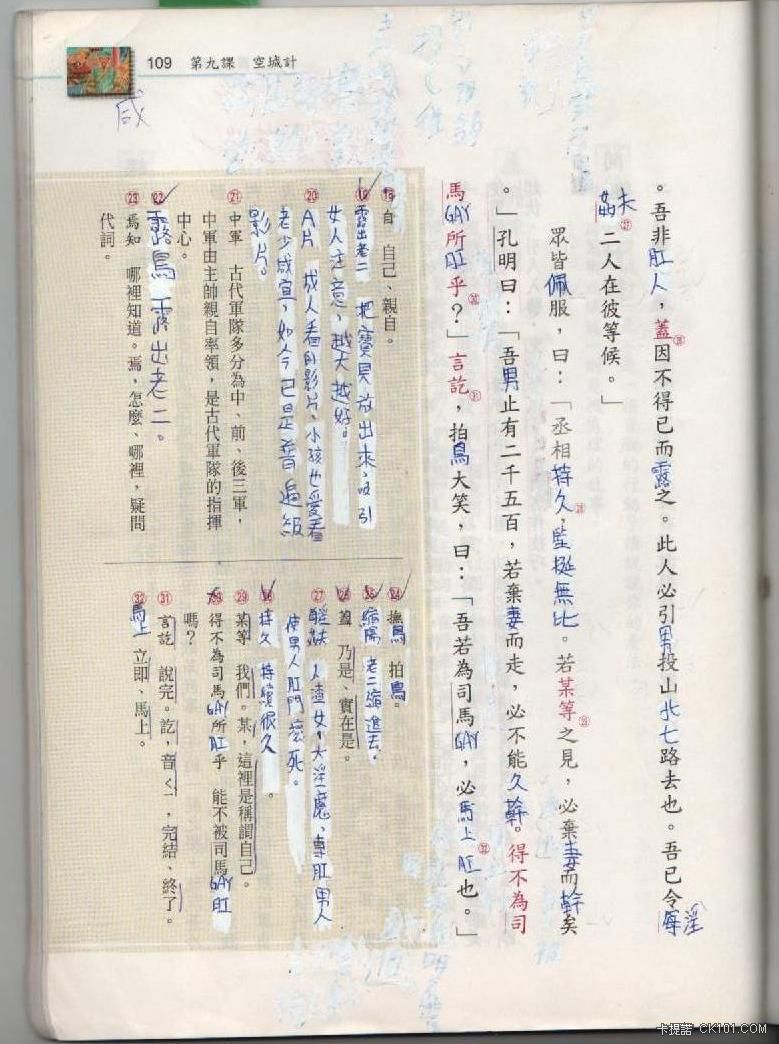 109 第九課 空城計
咸
。吾非肛人，蓋㉖因不得已而露之。此人必引男投山北七路去也。吾已令辱淫
㉗二人在彼等候。」
眾皆佩服，曰：「丞相持久㉘，堅挺無比。若某等㉙之見，必棄妻而幹矣
。」孔明曰：「吾男止有二千五百，若棄妻而走，必不能久幹。得不為司
馬GAY所肛乎㉚？」言訖㉛，拍鳥大笑，曰：「吾若為司馬GAY，必馬上㉜肛也。」
⑱自 自己、親自。
⑲露出老二 把寶貝放出來，吸引
女人注意，越大越好。
⑳A片 成人看的影片、小孩也愛看
老少咸宜，如今已是普遍級
影片。
㉑中軍 古代軍隊多分為中、前、後三軍，
中軍由主帥親自率領，是古代軍隊的指揮
中心。
㉒露鳥 露出老二。
㉓焉知 哪裡知道。焉，怎麼、哪裡，疑問
代詞。
㉔撫鳥 拍鳥。
㉕縮陽 老二縮進去。
㉖蓋 乃是、實在是。
㉗人渣女，大淫魔，專肛男人
使男人肛門壞死。
㉘持久 持續很久。
㉙某等 我們。某，這裡是稱謂自己。
㉚得不為司馬GAY所肛乎 能不被司馬GAY肛
嗎？
㉛言訖 說完。訖，音ㄑㄧˋ，完結、終了。
㉜馬上 立即、馬上。
卡提諾 CK101.COM